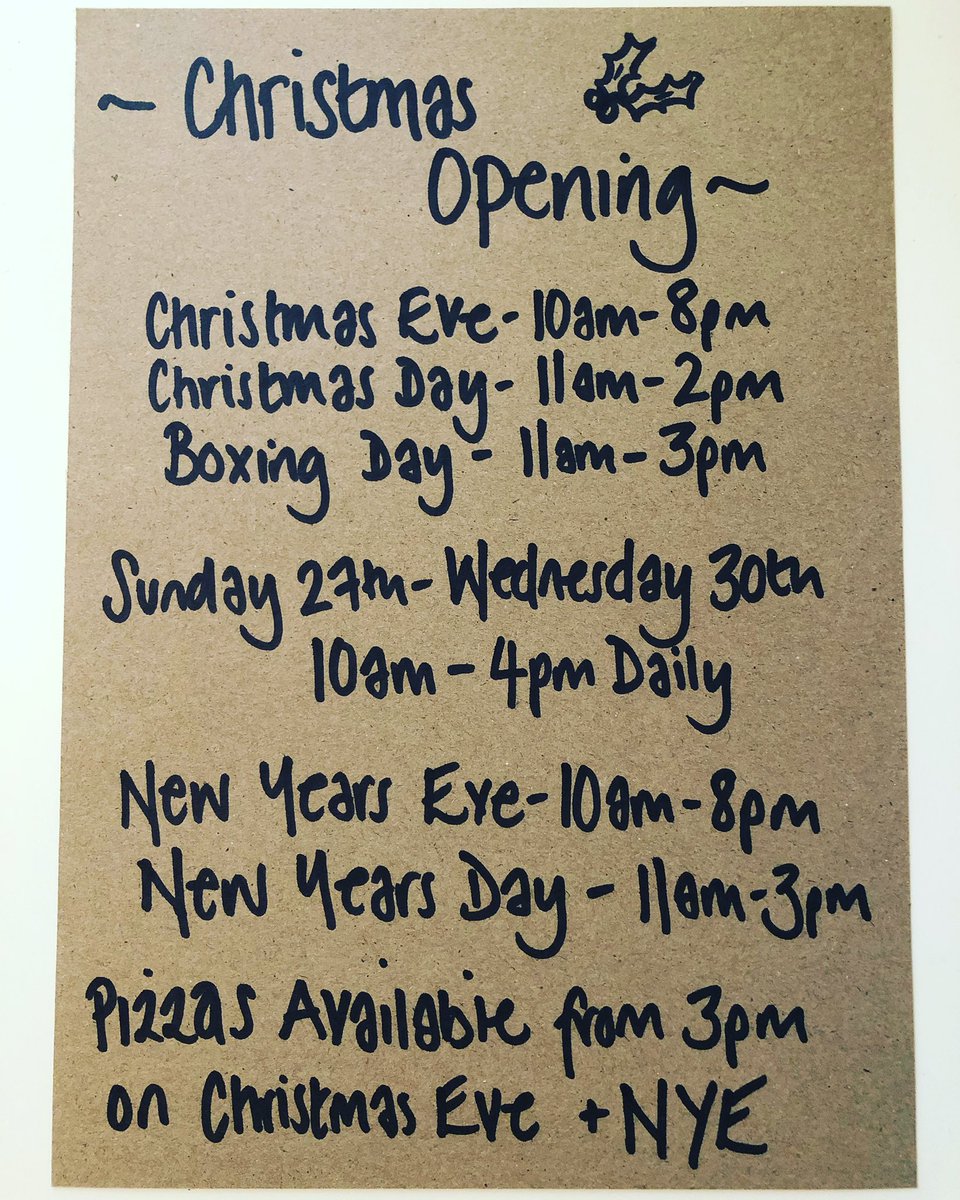 ~ Christmas
Opening ~
Christmas Eve - 10am - 8pm
Christmas Day - 11am - 2pm
Boxing Day - 11am - 3pm
Sunday 27th - Wednesday 30th
10am - 4pm Daily
New Years Eve - 10am - 8pm
New Years Day - 11am - 3pm
Pizzas Available from 3pm
on Christmas Eve + NYE